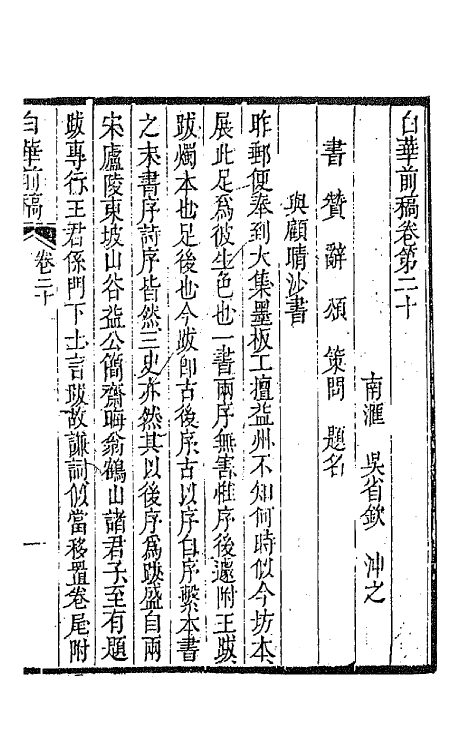 白華前稿卷第二十
南滙 吳省欽 沖之
書 贊 辭 頌 策問 題名
與顧晴沙書
昨郵便奉到大集墨板工擅益州不知何時似今坊本
展此足爲彼生色也一書兩序無害惟序後遽附王跋
跋燭本也足後也今跋卽古後序古以序自序繫本書
之末書序詩序皆然三史亦然其以後序爲跋盛自兩
宋廬陵東坡山谷益公簡齋晦翁鶴山諸君子至有題
跋專行王君係門下士言跋故謙詞似當移置卷尾附
白華前稿 卷二十 一